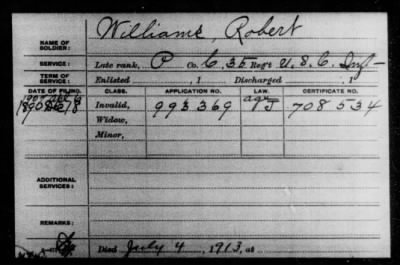 NAME OF SOLDIER: Williams, Robert
SERVICE: Late rank, P Co. C, 35 Reg't U.S.C. Inf
TERM OF SERVICE: Enlisted , 1 Discharged , 1
DATE OF FILING. CLASS. APPLICATION NO. LAW. CERTIFICATE NO.
Invalid, 993,369 age 708534
Widow,
Minor,
ADDITIONAL SERVICES:
REMARKS:
Died July 4, 1913, at